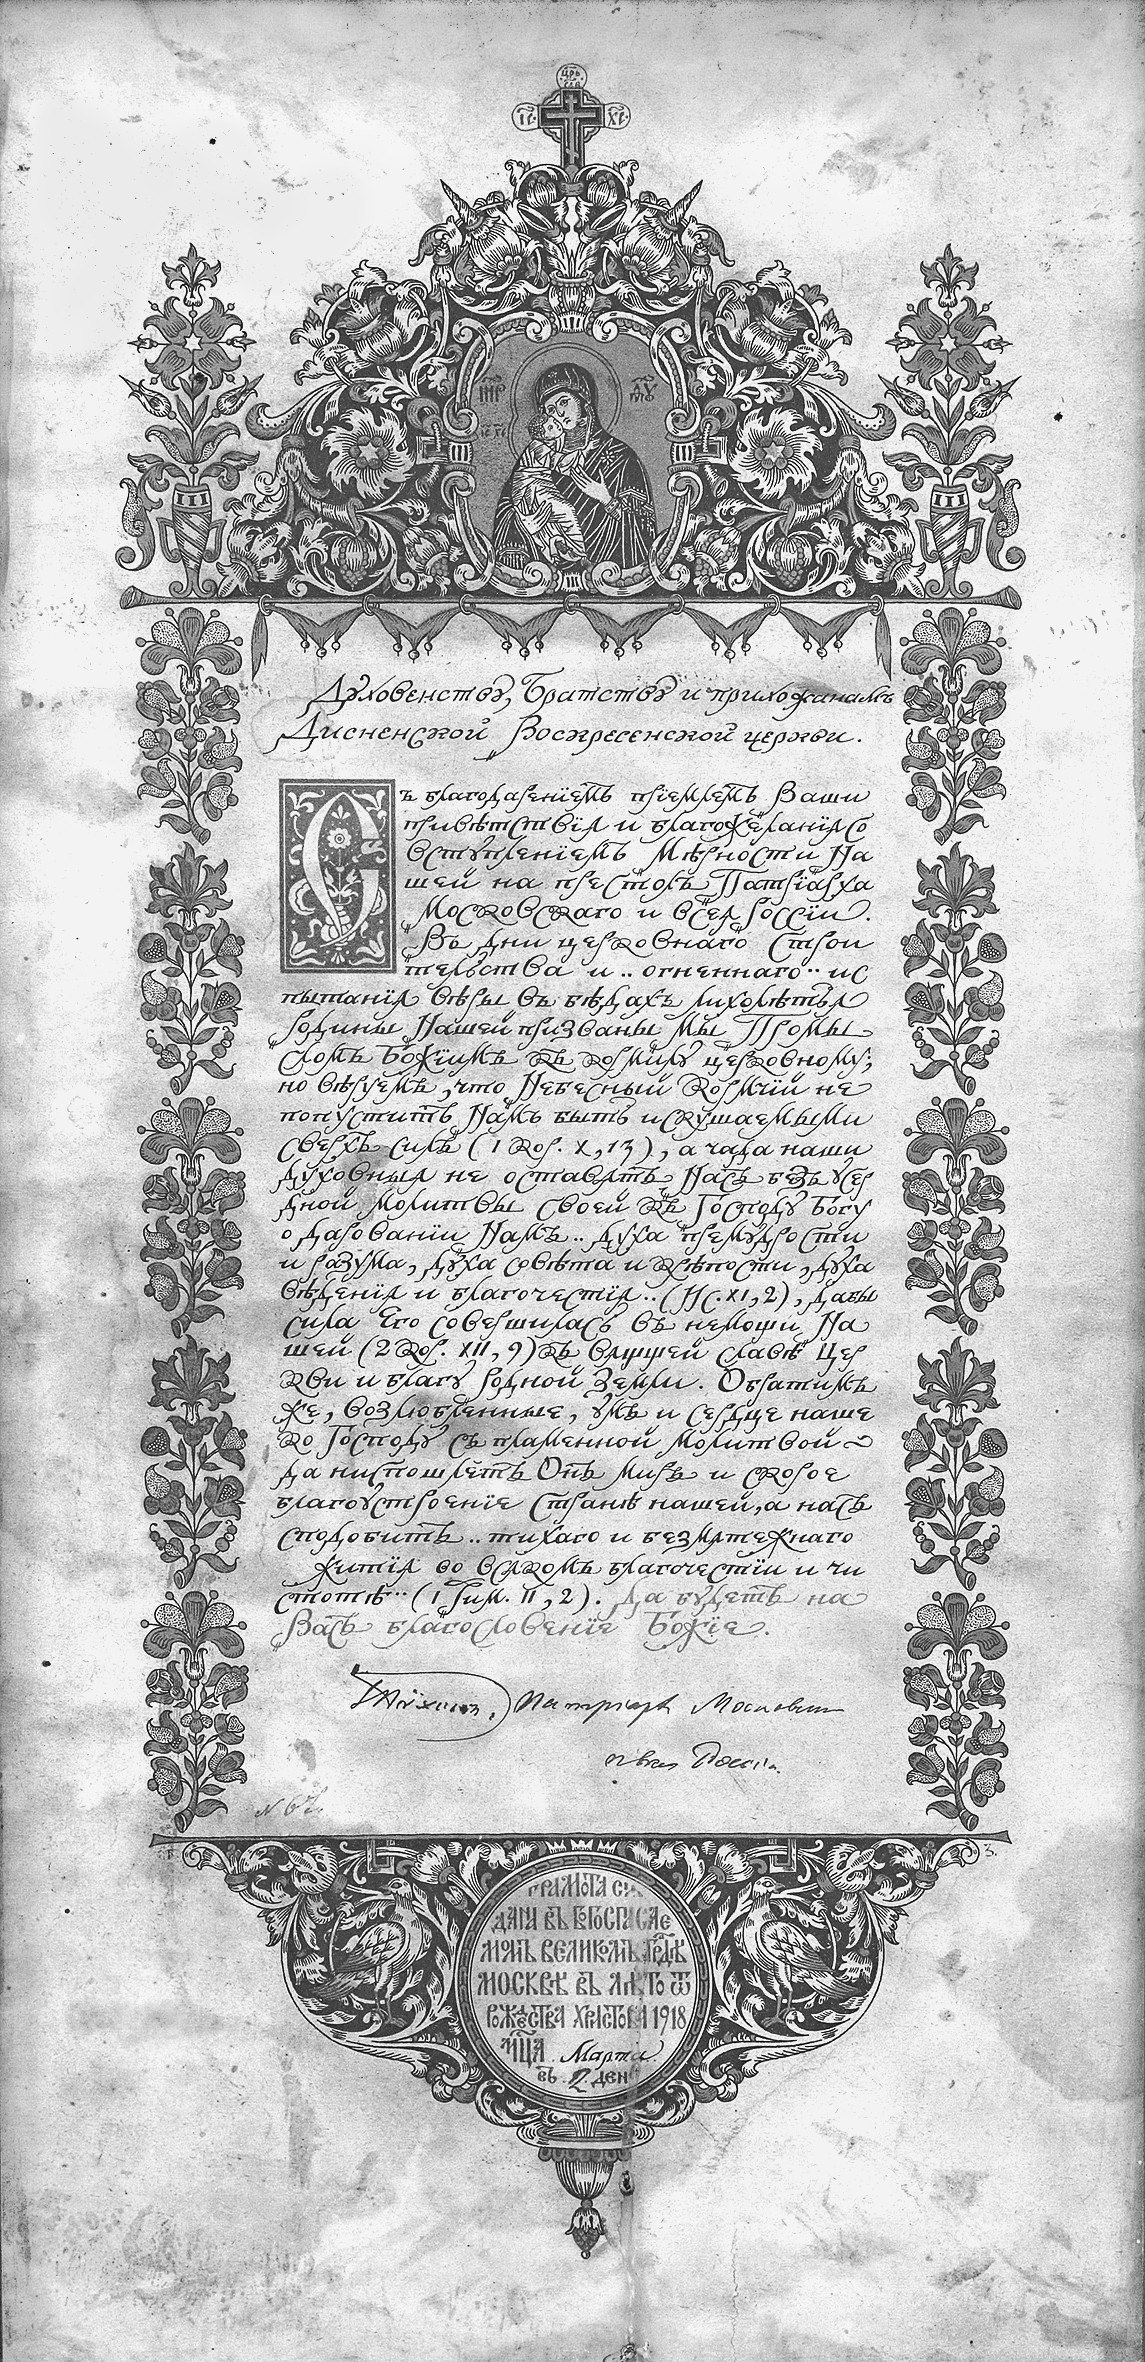 ЦРЬ
СЛА
ІС ХС
МР ѲУ
ІС ХС
Духовенству, Братству и прихожанамъ
Дисненской Воскресенской церкви.
Съ благодаренїемъ прїемлемъ Ваши
привѣтствїя и благожеланїя со
вступленїемъ Мѣрности На
шей на престолъ Патрїарха
Московскаго и всея Россїи.
Въ дни церковнаго строи
тельства и „огненнаго“ ис
пытанїя вѣры въ бѣдахъ лихолѣтья
родины Нашей призваны Мы Промы
сломъ Божїимъ къ кормилу церковному;
но вѣруемъ, что Небесный Кормчїй не
попуститъ Намъ быть искушаемыми
сверхъ силъ (1 Кор. X, 13), а чада наши
духовныя не оставятъ Насъ безъ усер
дной молитвы своей къ Господу Богу
о дарованїи Намъ „духа премудрости
и разума, духа совѣта и крѣпости, духа
вѣденїя и благочестїя“ (Ис. XI, 2), дабы
сила Его совершилась въ немощи На
шей (2 Кор. XII, 9) къ вящшей славѣ Цер
кви и благу родной земли. Обратимъ
же, возлюбленные, умъ и сердце наше
ко Господу съ пламенной молитвой ~
да ниспошлетъ Онъ миръ и скорое
благоустроенїе странѣ нашей, а насъ
сподобитъ „тихаго и безмятежнаго
житїя во всякомъ благочестїи и чи
стотѣ“ (1 Тим. II, 2). Да будетъ на
Васъ благословенїе Божїе.
Тихонъ, Патріархъ Московскій
и всея Россіи.
Б. З.
ГРАМОТА СІѦ
ДАНА ВЪ БОГОСПАСАЕ
МОМЪ ВЕЛИКОМЪ ГРАДѢ
МОСКВѢ ВЪ ЛѢТО Ѿ
РОЖДЕСТВА ХРИСТОВА 1918
МЦА Марта
ВЪ 2 ДЕНЬ